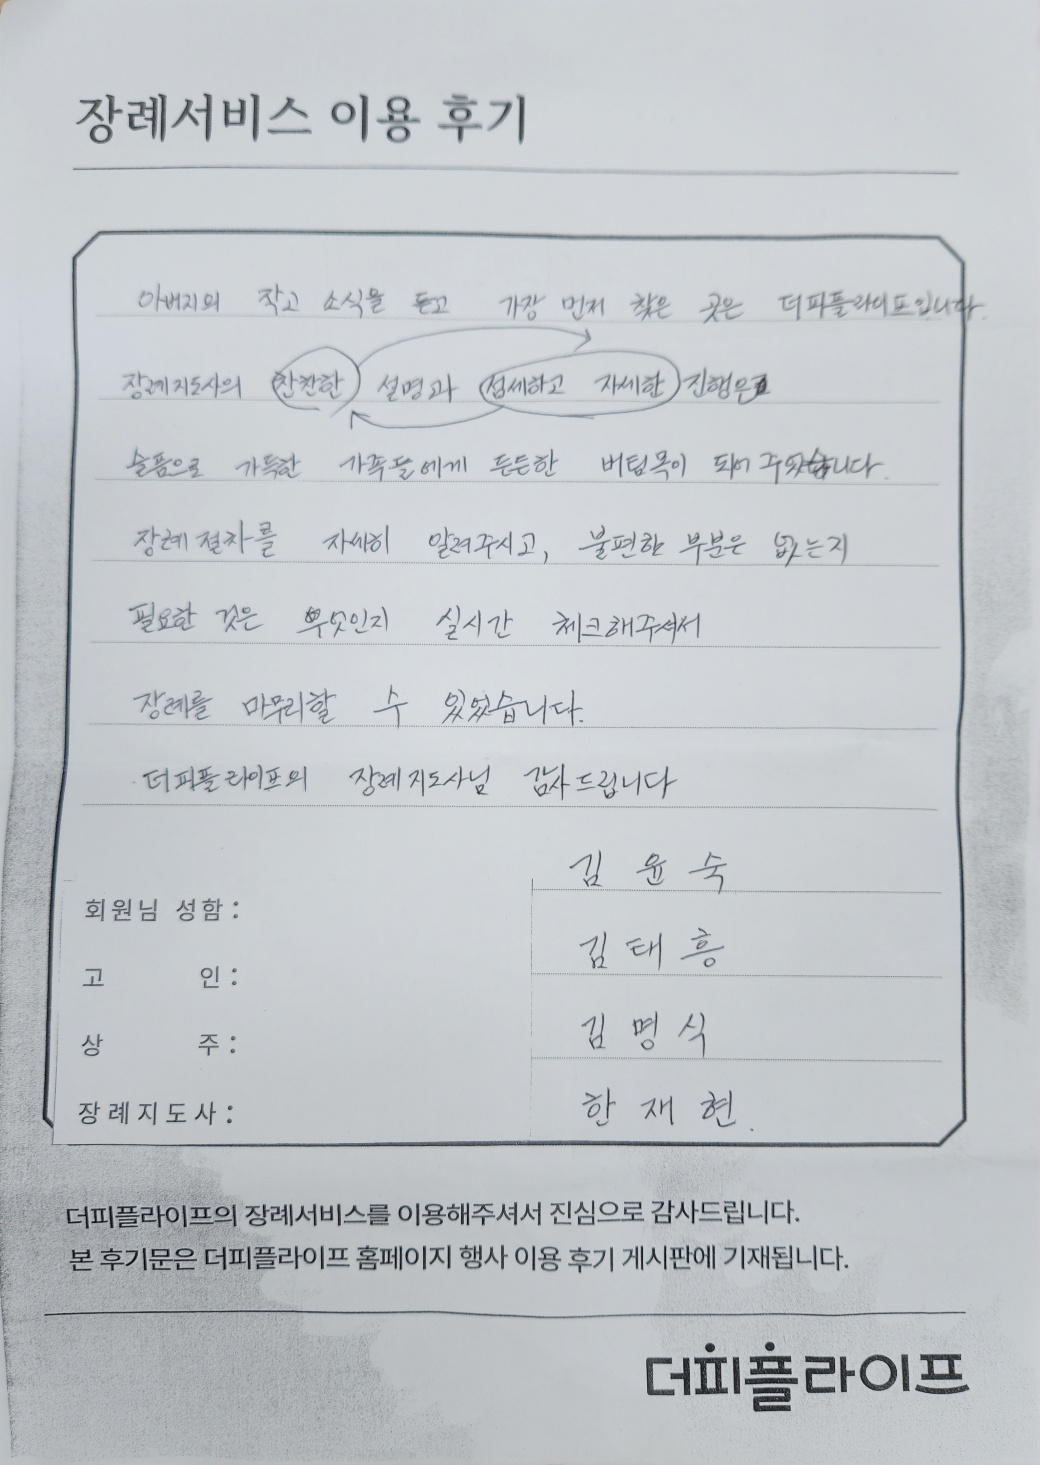 장례서비스 이용 후기
아버지의 작고 소식을 듣고 가장 먼저 찾은 곳은 더피플라이프입니다.
장례지도사의 찬찬한 설명과 섬세하고 자세한 진행은
슬픔으로 가득한 가족들에게 든든한 버팀목이 되어 주었습니다.
장례절차를 자세히 알려주시고, 불편한 부분은 없는지
필요한 것은 무엇인지 실시간 체크해주셔서
장례를 마무리할 수 있었습니다.
더피플라이프의 장례지도사님 감사드립니다
회원님 성함 : 김윤숙
고 인 : 김태흥
상 주 : 김명식
장례지도사 : 한재현.
더피플라이프의 장례서비스를 이용해주셔서 진심으로 감사드립니다.
본 후기문은 더피플라이프 홈페이지 행사 이용 후기 게시판에 기재됩니다.
더피플라이프